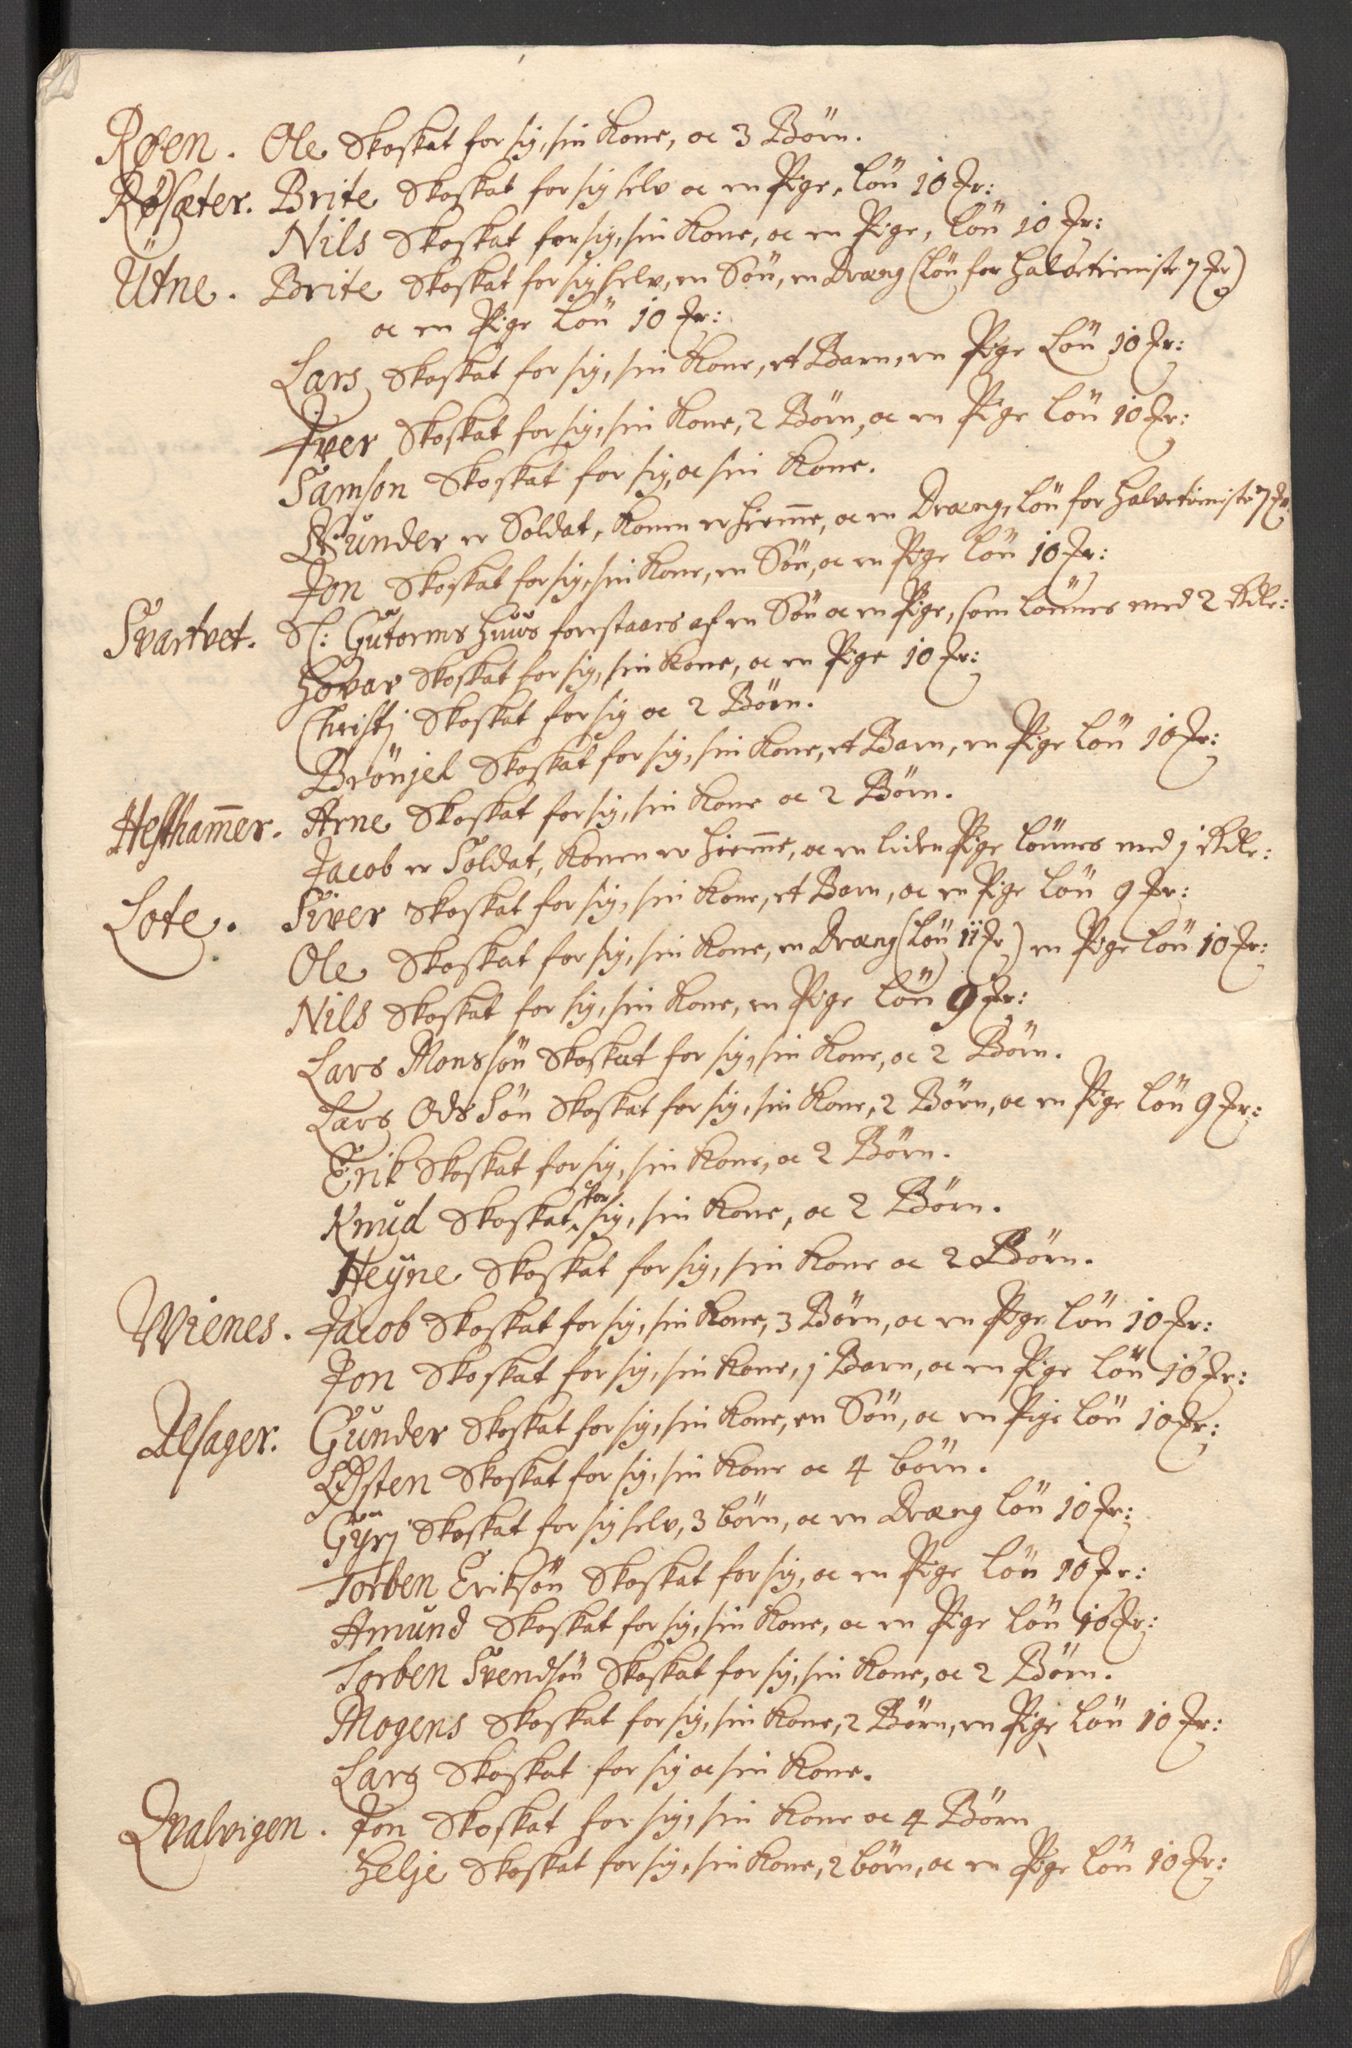 Røen. Ole Skoskat for sig, sin Kone, oc 3 Börn.
Røsæter. Brite Skoskat for sig selv oc en Pige, lön 10 Fr:
Nils Skoskat for sig, sin Kone, oc en Pige, lön 10 Fr:
Utne. Brite Skoskat for sig selv, en Sön, en Dræng (lön for halve tieniste 7 Fr)
oc en Pige lön 10 Fr:
Lars Skoskat for sig, sin Kone, et Barn, en Pige Lön 10 Fr:
Iver Skoskat for sig, sin Kone, 2 Börn, oc en Pige lön 10 Fr:
Samson Skoskat for sig, oc sin Kone.
Gunder er Soldat, Konen er hiemme, oc en Dræng, lön for halve tieniste 7 Fr.
Jon Skoskat for sig, sin Kone, en Sön, oc en Pige lön 10 Fr:
Svartvet. Sl: Gutorms Huus forestaars af en Sön oc en Pige, som lönnes med 2 Rdlr:
Hovar Skoskat for sig, sin Kone, oc en Pige 10 Fr:
Christj Skoskat for sig oc 2 Börn.
Brönjel Skoskat for sig, sin Kone, et Barn, en Pige lön 10 Fr:
Hesthammer. Arne Skoskat for sig, sin Kone oc 2 Börn.
Jacob er Soldat, Konen er hiemme, oc en liden Pige lönnes med j Rdlr:
Lote. Siver Skoskat for sig, sin Kone, et Barn, oc en Pige lön 9 Fr:
Ole Skoskat for sig, sin Kone, en Dræng (lön 11 Fr) en Pige lön 10 Fr:
Nils Skoskat for sig, sin Kone, en Pige lön 9 Fr:
Lars Monssön Skoskat for sig, sin Kone, oc 2 Börn.
Lars Odssön Skoskat for sig, sin Kone, 2 Börn, oc en Pige lön 9 Fr:
Erik Skoskat for sig, sin Kone, oc 2 Börn.
Knud Skoskat for sig, sin Kone, oc 2 Börn.
Heyne Skoskat for sig, sin Kone oc 2 Börn.
Wienes. Jacob Skoskat for sig, sin Kone, 3 Börn, oc en Pige lön 10 Fr:
Jon Skoskat for sig, sin Kone, j Barn, oc en Pige lön 10 Fr:
Alsager. Gunder Skoskat for sig, sin Kone, en Sön, oc en Pige lön 10 Fr:
Østen Skoskat for sig, sin Kone oc 4 börn.
Gyrj Skoskat for sig selv, 3 börn, oc en Dræng lön 10 Fr:
Torben Eriksön Skoskat for sig, oc en Pige lön 10 Fr:
Amund Skoskat for sig, sin Kone, oc en Pige lön 10 Fr:
Torben Svendsön Skoskat for sig, sin Kone, oc 2 Börn.
Mogens Skoskat for sig, sin Kone, 2 Börn, en Pige lön 10 Fr:
Lars Skoskat for sig oc sin Kone.
Qvalvigen. Jon Skoskat for sig, sin Kone oc 4 Börn
Helje Skoskat for sig, sin Kone, 2 börn, oc en Pige lön 10 Fr: